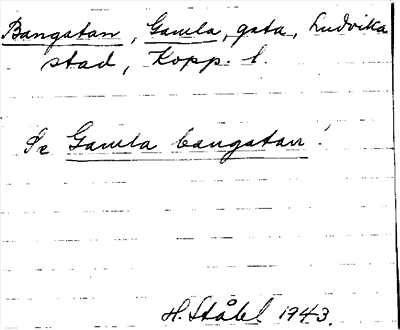 Bangatan, Gamla, gata, Ludvika
stad, Kopp. l.
Se Gamla bangatan!
H. Ståhl 1943.